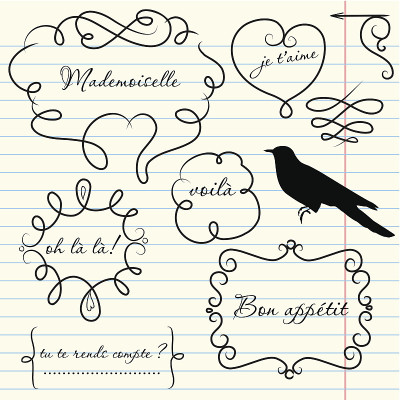 Mademoiselle
je t'aime
voilà
oh là là!
Bon appétit
tu te rends compte ?